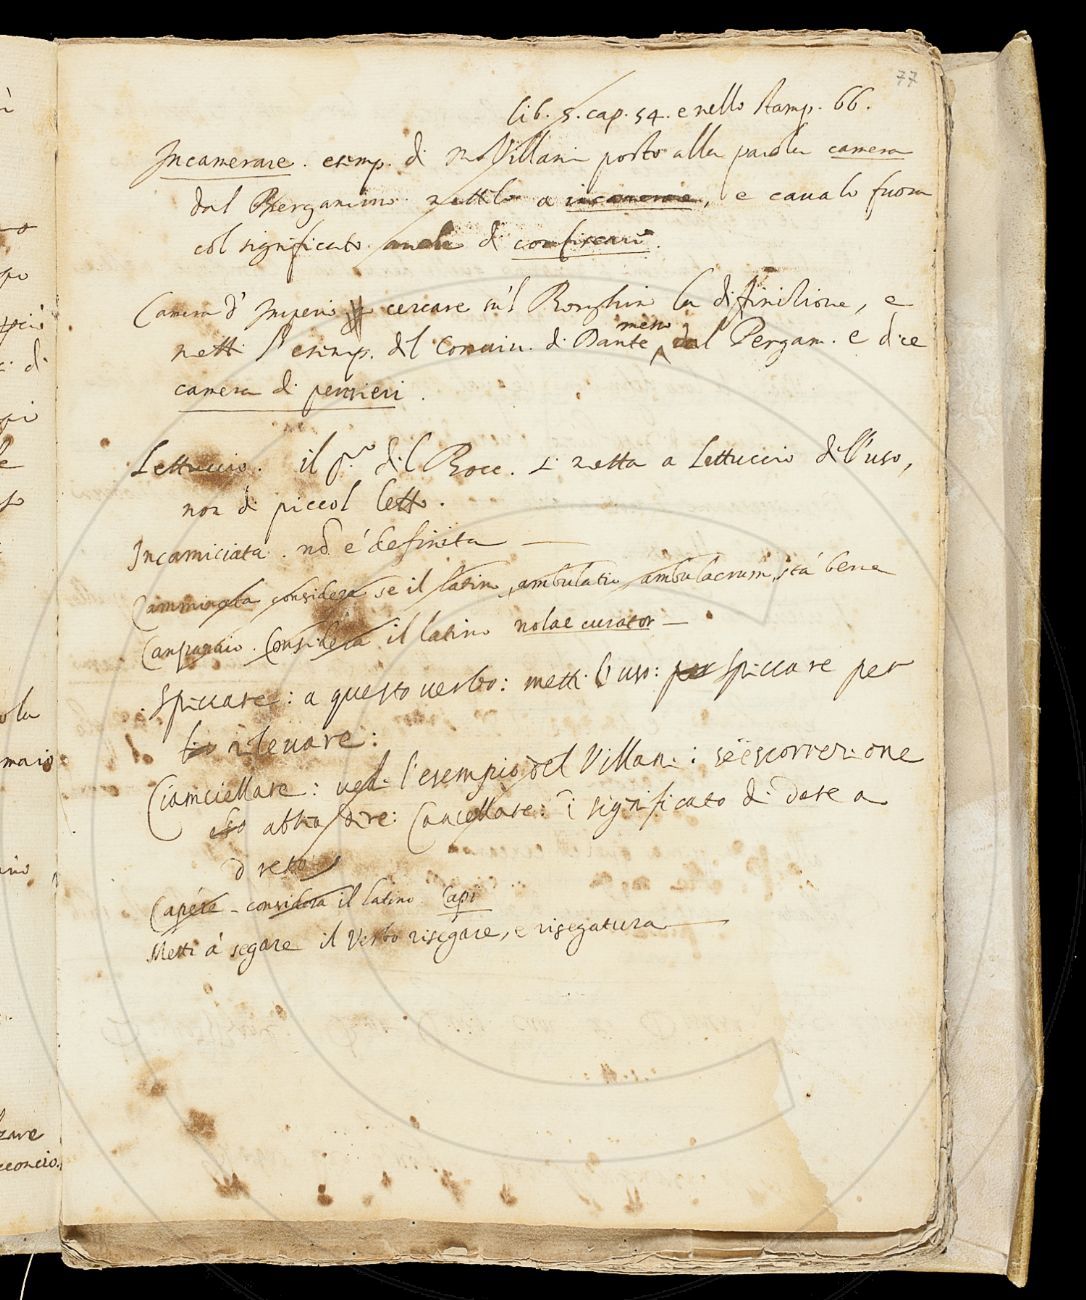 77
lib. 5. cap. 54. e nello stamp. 66.
Incamerare. esemp. di M. Villani posto alla parola camera
dal Bergamino mettilo a incamerare, e cavalo fuora
col significato anche di confiscare.
Camera d' Imperio cercare nel Borghin la difinizione, e
metti l' esemp. del Convivi. di Dante messo dal Pergam. e dice
camera di pensieri.
Lettuccio. il p.º del Bocc. si metta a Lettuccio dell'uso,
non di piccol letto.
Incamiciata. nõ è definita
Camminata considera se il latino, ambulatio ambulacrum, stà bene
Campanaio. Considera il latino nolae curator
Spiccare: a questo verbo: metti l'uso: per spiccare per
rilevare:
Ciamciellare: vedi l'esempio del Villani: se è scorrezione
Cancellare: ĩ significato di dare a
Capére - considera il latino Capi
Metti à segare il Verbo risegare, e risegatura